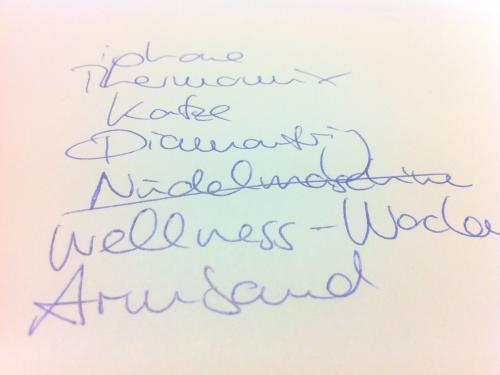 iphone
Thermomix
Katze
Diamantring
Nudelmaschine
Wellness-Woche
Armband